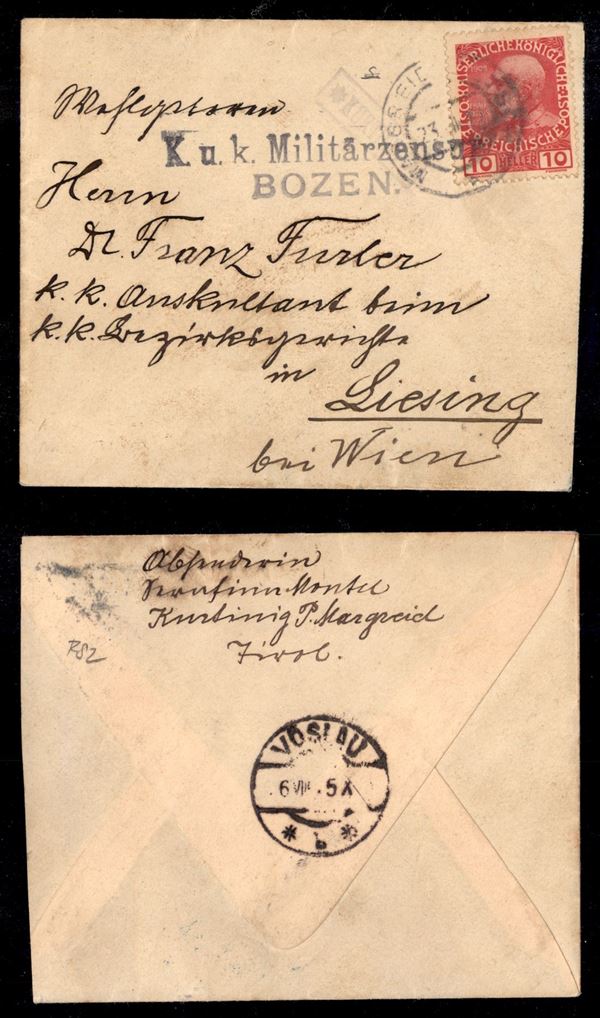 Wohlgeboren
K. u. k. Militärzensur
BOZEN.
KAISERLICHE KÖNIGLICHE
ÖSTERREICHISCHE
10 HELLER 10
23
Herrn
Dr. Franz Furler
k. k. Auskultant beim
k. k. Bezirksgerichte
in
Liesing
bei Wien
Absenderin
Serafina Montel
Kurtinig P. Margreid
Tirol.
RS2
VÖSLAU
6 VIII 15 X
* b *